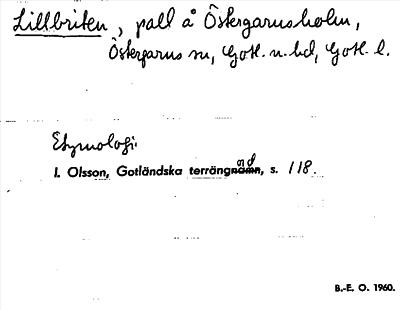 Lillbriten, pall å Östergarnsholm,
Östergarns sn, Gotl. n. hd, Gotl. l.
Etymologi:
I. Olsson, Gotländska terrängord, s. 118.
B.-E. O. 1960.